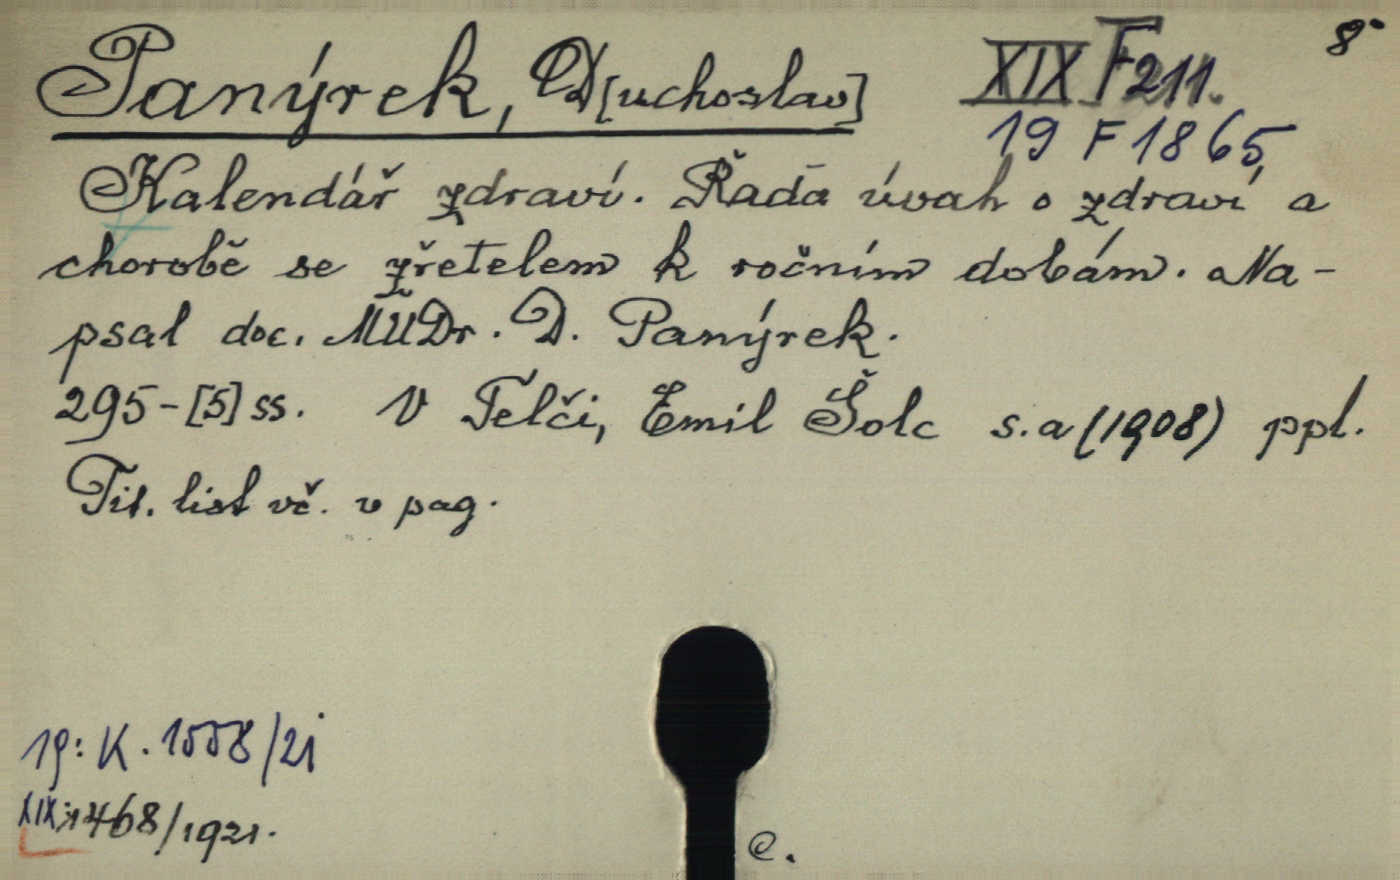 Panýrek, D[uchoslav]
XIX F 211.
8°
19 F 1865
Kalendář zdraví. Řada úvah o zdraví a
chorobě se zřetelem k ročním dobám. Na-
psal doc. MUDr. D. Panýrek.
295-[5] ss. V Telči, Emil Šolc s.a (1908) ppl.
Tit. list vč. v pag.
19: K. 1558/21
XIX: 1468/1921.
C.